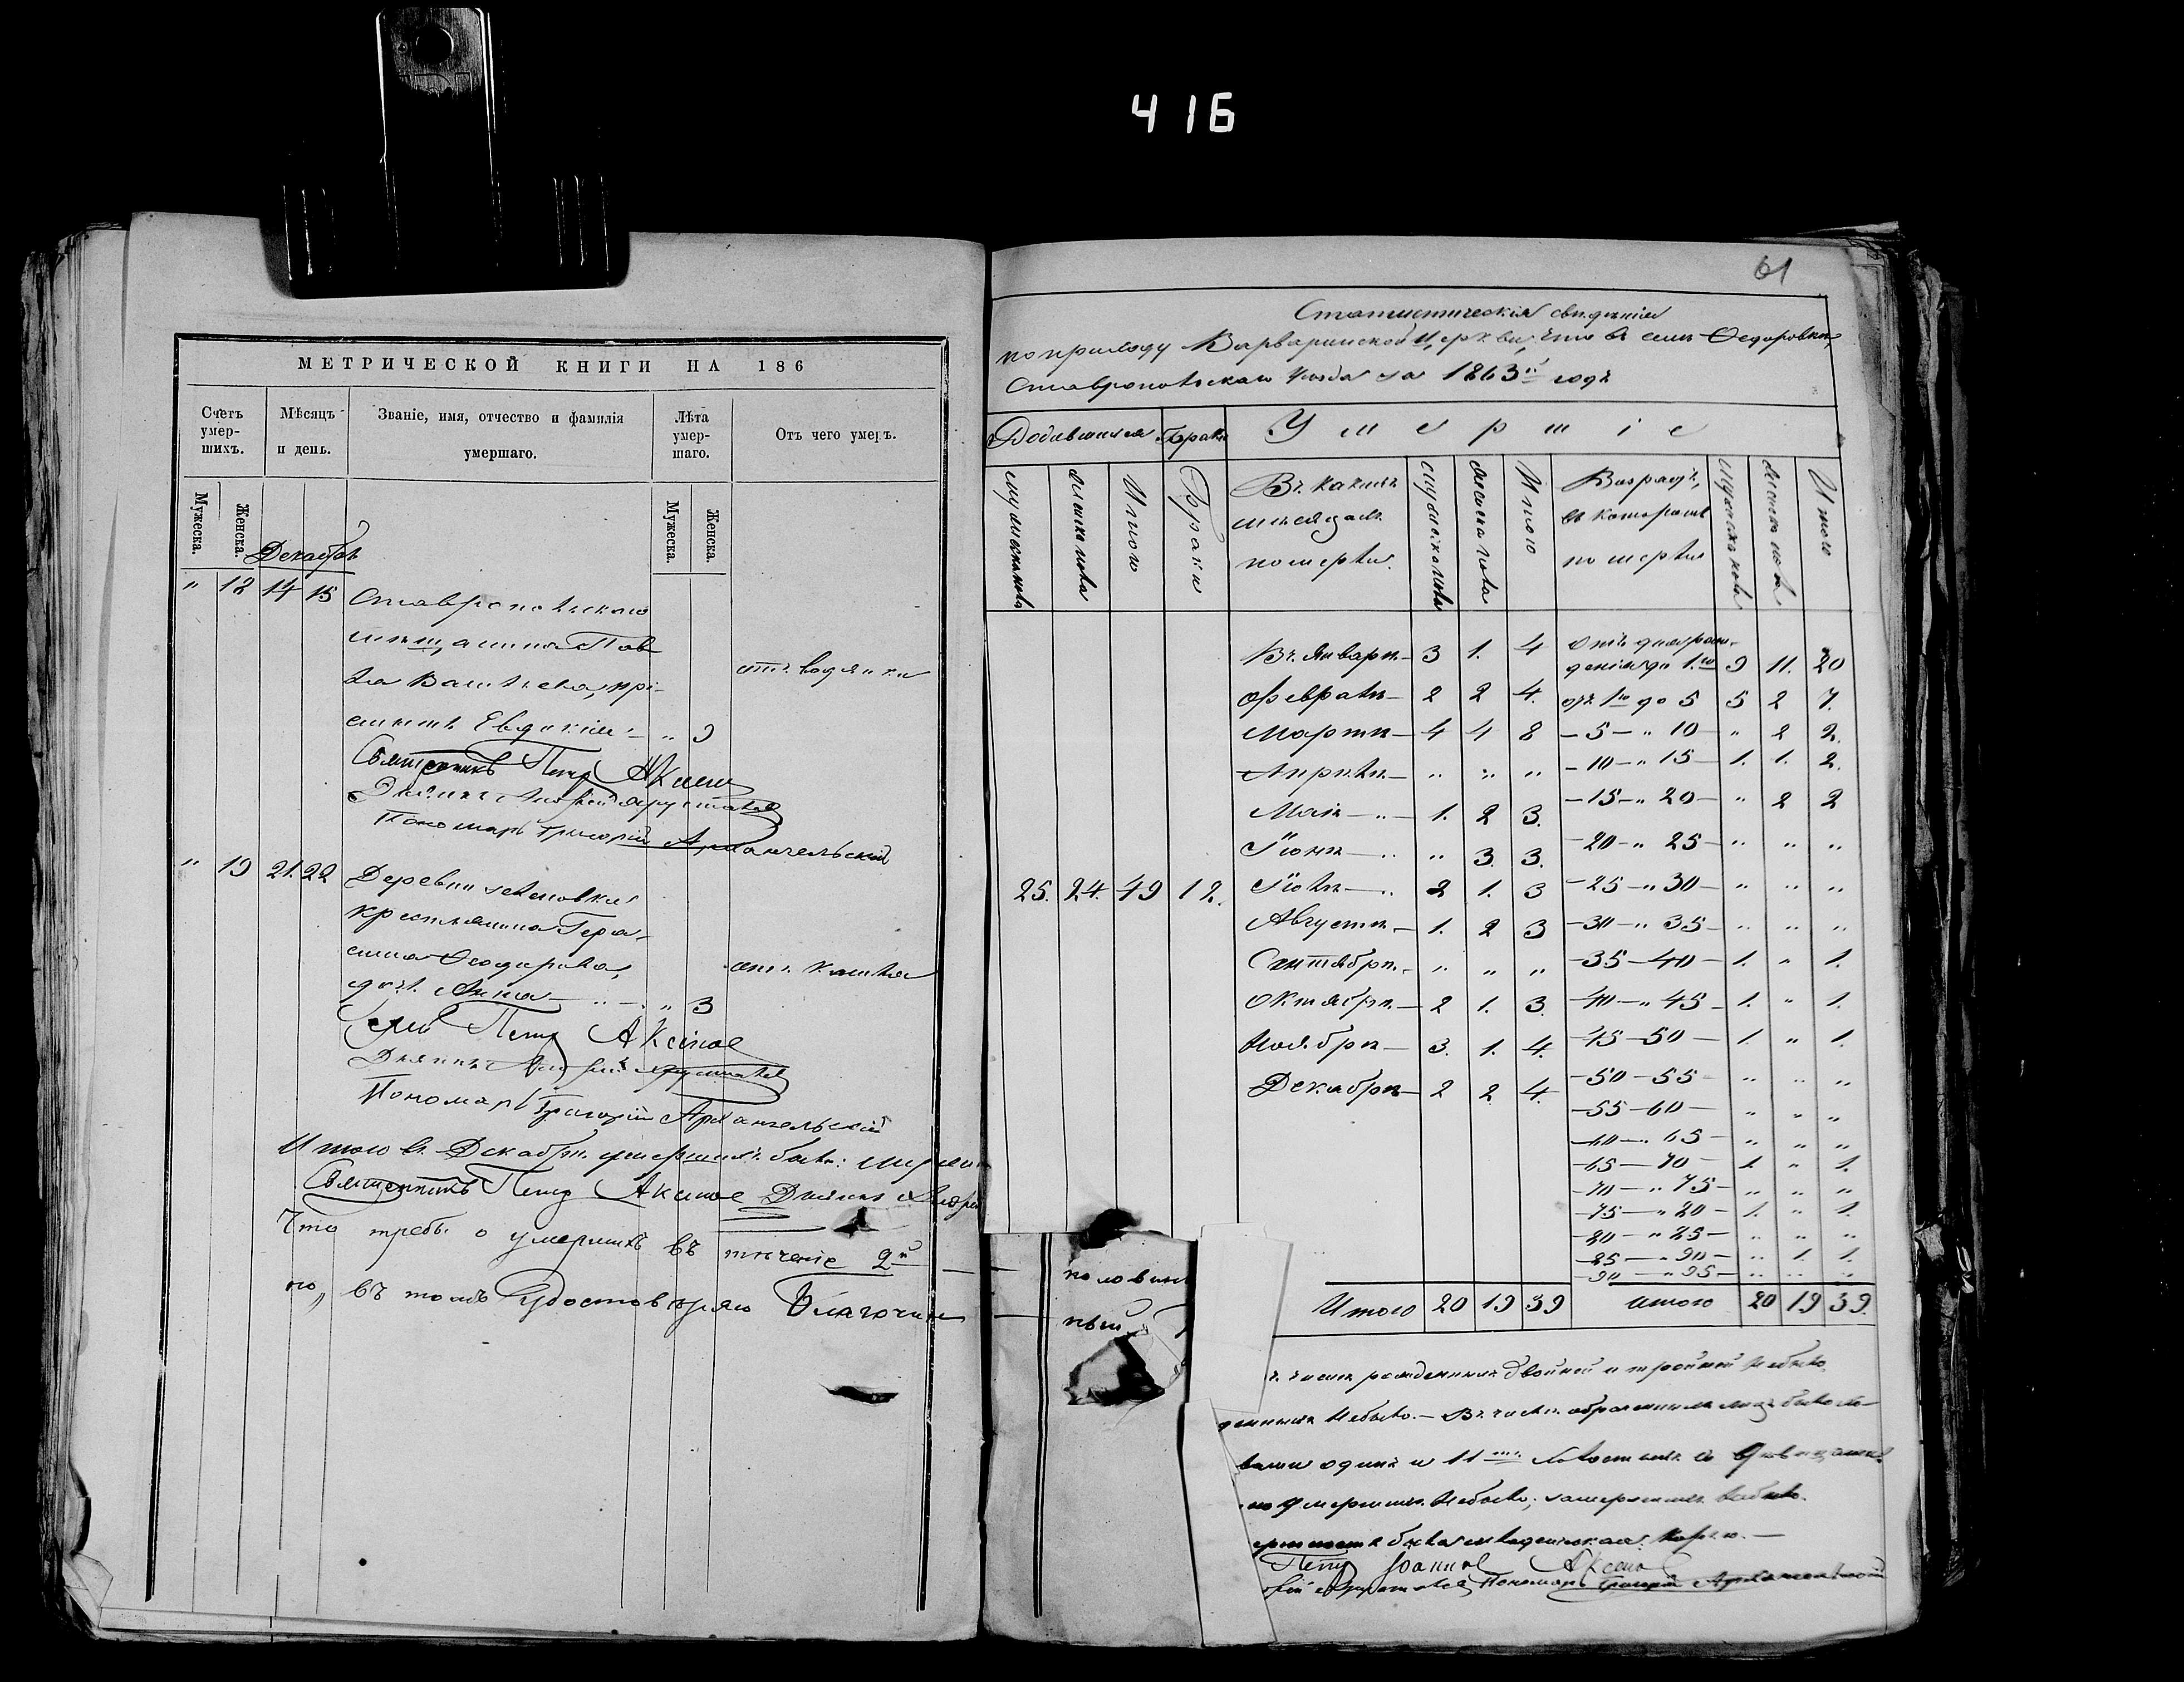 416
МЕТРИЧЕСКОЙ КНИГИ НА 186
Счетъ умер-шихъ.
Мѣсяцъ и день.
Званіе, имя, отчество и фамилія умершаго.
Лѣта умер-шаго.
Отъ чего умеръ.
Мужеска.
Женска.
Мужеска.
Женска.
Декабрь
" 18 14 15 Ставропольскаго
мѣщанина Пав
ла Васильева,
отъ водянки
Евдокія " 9
Священникъ Петръ Аксіновъ
Пономарь Григорій Архангельскій
" 19 21. 22 Деревни
крестьянина Гера-
сима Ѳеодорова,
отъ кашля
дочь Анна " 3
Свящ Петръ Аксіновъ
Діаконъ Андрей
Пономарь Григорій Архангельскій
Итого въ Декабрѣ умершихъ было:
Священникъ Петръ Аксіновъ Діаконъ Андрей
Что требы о умершихъ въ теченіе 2й
но, въ томъ Удостовѣряю Благочин
половин
ный
61
Статистическія свѣдѣнія
по приходу Варваринской Церкви, что въ селѣ Ѳедоровкѣ,
Ставропольскаго уѣзда за 1863й годъ
Родившихся
Браки
Умершіе
мужеска пола
женска пола
Итого
Браки
Въ какихъ мѣсяцахъ померли.
мужеска пола
женска пола
Итого
Возрастъ, въ которомъ померли
мужеска пола
женска пола
Итого
Въ Январѣ 3 1. 4 отъ дня рож-
денія до 1.го 9 11. 20
Февралѣ 2 2 4. отъ 1го до 5 5 2 7.
Мартѣ 4 4 8 - 5 - " 10 - " 2 2.
Апрѣлѣ " " " - 10 - " 15 - 1. 1. 2.
Маѣ 1. 2 3. - 15 - " 20 - " 2 2
Іюнѣ " 3. 3. - 20 - " 25 - " " "
25. 24. 49 12. Іюлѣ 2 1. 3 - 25 - " 30 - " " "
Августѣ 1. 2 3 - 30 - " 35 - " " "
Сентябрѣ " " " - 35 - 40 - 1. " 1.
Октябрѣ 2 1. 3. - 40 - " 45 - 1. " 1.
Ноябрѣ 3. 1. 4. - 45 - 50 - 1. " 1.
Декабрѣ 2 2 4. - 50 - 55 - " " "
- 55 - 60 - " " "
- 60 - " 65 - " " "
- 65 - 70 - 1. " 1.
- 70 - " 75 - " " "
- 75 - " 80 - 1. " 1.
- 80 - " 85 - " " "
- 85 - " 90 - " 1. 1.
- 90 - " 95 - " " "
Итого 20 19 39 Итого 20 19 39.
ъ числѣ рожденныхъ двойней и тройней небыло.
денныхъ небыло. - Въ числѣ
одинъ и 11
умершихъ небыло;
Петръ Іоанновъ Аксіновъ
Пономарь Григорій Архангельскій